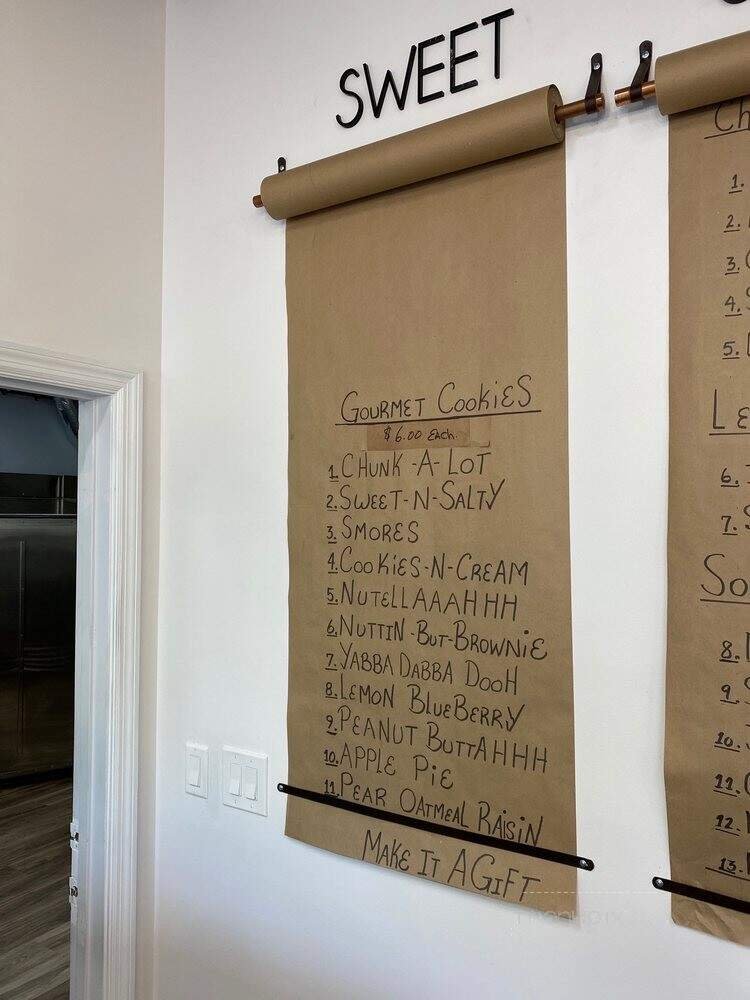 SWEET
GOURMET COOKIES
$6.00 EACH.
1. CHUNK-A-LOT
2. SWEET-N-SALTY
3. SMORES
4. COOKIES-N-CREAM
5. NUTELLAAAHHH
6. NUTTIN-BUT-BROWNIE
7. YABBA DABBA DOOH
8. LEMON BLUEBERRY
9. PEANUT BUTTAHHH
10. APPLE PIE
11. PEAR OATMEAL RAISIN
MAKE IT A GIFT
Ch
1.
2.
3.
4.
5.
LE
6.
7.
SO
8.
9.
10.
11.
12.
13.